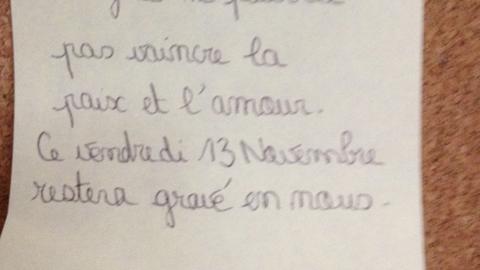 pas vaincre la
paix et l'amour.
Ce vendredi 13 Novembre
restera gravé en nous.